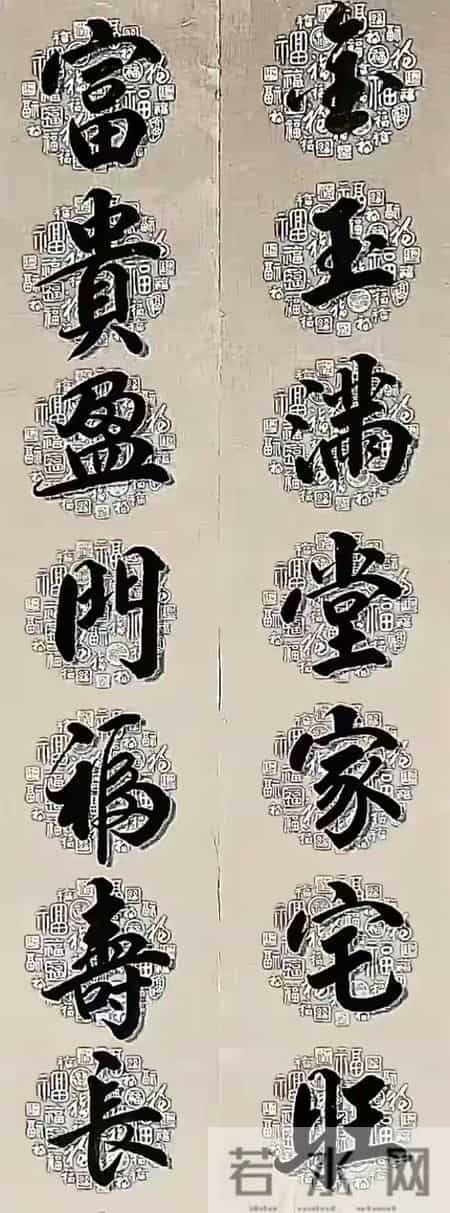 金玉滿堂家宅旺
富貴盈門福壽長
若水网